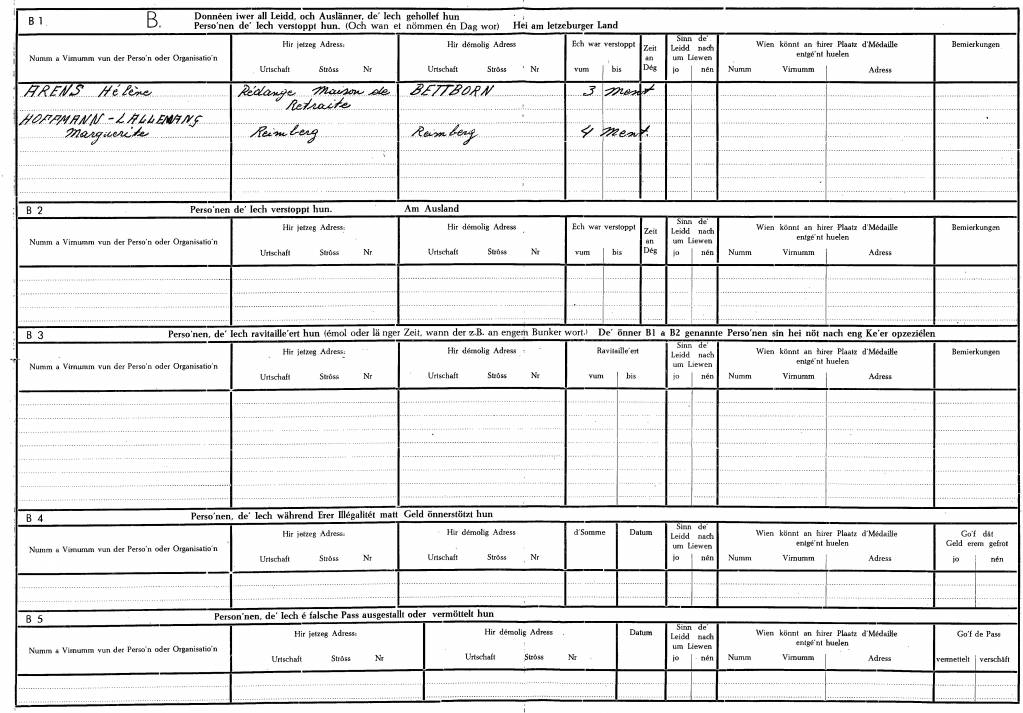 B 1
B.
Donnéen iwer all Leidd, och Auslänner, de' Iech gehollef hun
Perso'nen de' Iech verstoppt hun. (Och wan et nömmen én Dag wor) Hei am letzeburger Land
Numm a Virnumm vun der Perso'n oder Organisatio'n
Hir jetzeg Adress:
Urtschaft Strôss Nr
Hir démolig Adress
Urtschaft Strôss Nr
Ech war verstoppt
vum bis
Zeit
an
Dég
Sinn de'
Leidd nach
um Liewen
jo nén
Wien könnt an hirer Plaatz d'Médaille
entgé'nt huelen
Numm Virnumm Adress
Bemierkungen
ARENS Hélène Rédange Maison de BETTBORN 3 Ment
Retraite
HOFFMANN-LALLEMANG
Marguerite Reimberg Reimberg 4 Ment.
B 2 Perso'nen de' Iech verstoppt hun. Am Ausland
Numm a Virnumm vun der Perso'n oder Organisatio'n
Hir jetzeg Adress:
Urtschaft Strôss Nr
Hir démolig Adress
Urtschaft Strôss Nr
Ech war verstoppt
vum bis
Zeit
an
Dég
Sinn de'
Leidd nach
um Liewen
jo nén
Wien könnt an hirer Plaatz d'Médaille
entgé'nt huelen
Numm Virnumm Adress
Bemierkungen
B 3 Perso'nen, de' Iech ravitaille'ert hun (émol oder länger Zeit, wann der z.B. an engem Bunker wort.) De' önner B1 a B2 genannte Perso'nen sin hei nöt nach eng Ke'er opzeziélen
Numm a Virnumm vun der Perso'n oder Organisatio'n
Hir jetzeg Adress:
Urtschaft Strôss Nr
Hir démolig Adress
Urtschaft Strôss Nr
Ravitaille'ert
vum bis
Sinn de'
Leidd nach
um Liewen
jo nén
Wien könnt an hirer Plaatz d'Médaille
entgé'nt huelen
Numm Virnumm Adress
Bemierkungen
B 4 Perso'nen, de' Iech während Erer Illégalitét matt Geld önnerstötzt hun
Numm a Virnumm vun der Perso'n oder Organisatio'n
Hir jetzeg Adress:
Urtschaft Strôss Nr
Hir démolig Adress
Urtschaft Strôss Nr
d'Somme
Datum
Sinn de'
Leidd nach
um Liewen
jo nén
Wien könnt an hirer Plaatz d'Médaille
entgé'nt huelen
Numm Virnumm Adress
Go'f dât
Geld erem gefrot
jo nén
B 5 Person'nen, de' Iech é falsche Pass ausgestallt oder vermöttelt hun
Numm a Virnumm vun der Perso'n oder Organisatio'n
Hir jetzeg Adress:
Urtschaft Strôss Nr
Hir démolig Adress
Urtschaft Strôss Nr
Datum
Sinn de'
Leidd nach
um Liewen
jo nén
Wien könnt an hirer Plaatz d'Médaille
entgé'nt huelen
Numm Virnumm Adress
Go'f de Pass
vermettelt verschâft